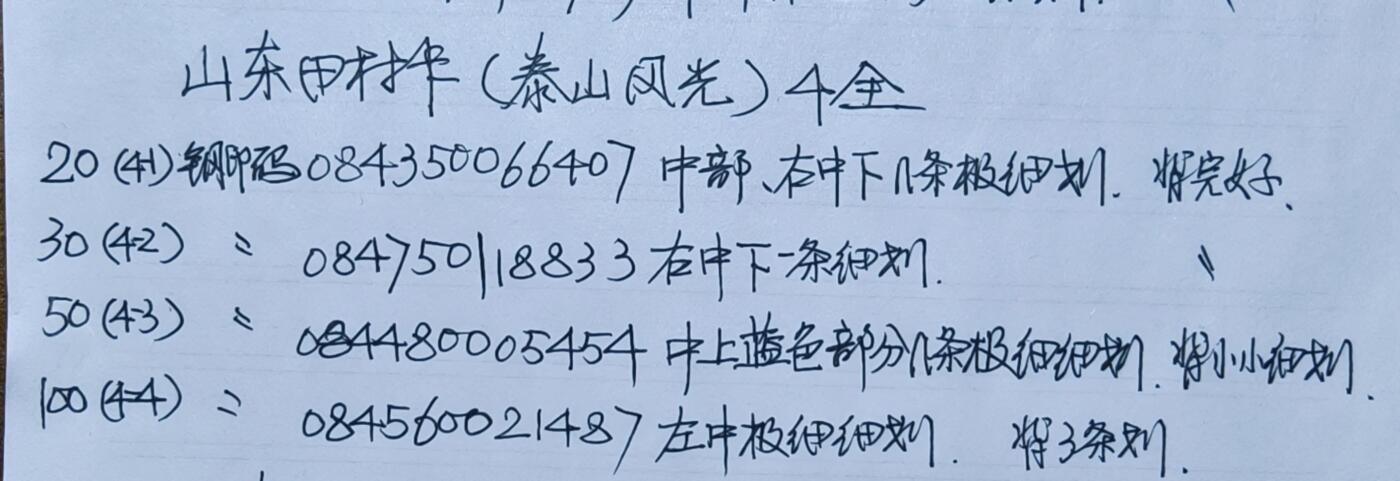 山东田村卡（泰山风光）4全
20（4-1）钢印码084350066407 中部、右中下几条极细划. 背完好.
30（4-2） 〃 084750118833 右中下一条细划. 〃
50（4-3） 〃 084480005454 中上蓝色部分几条极细细划. 背小小细划.
100（4-4） 〃 084560021487 左中极细细划. 背3条划.